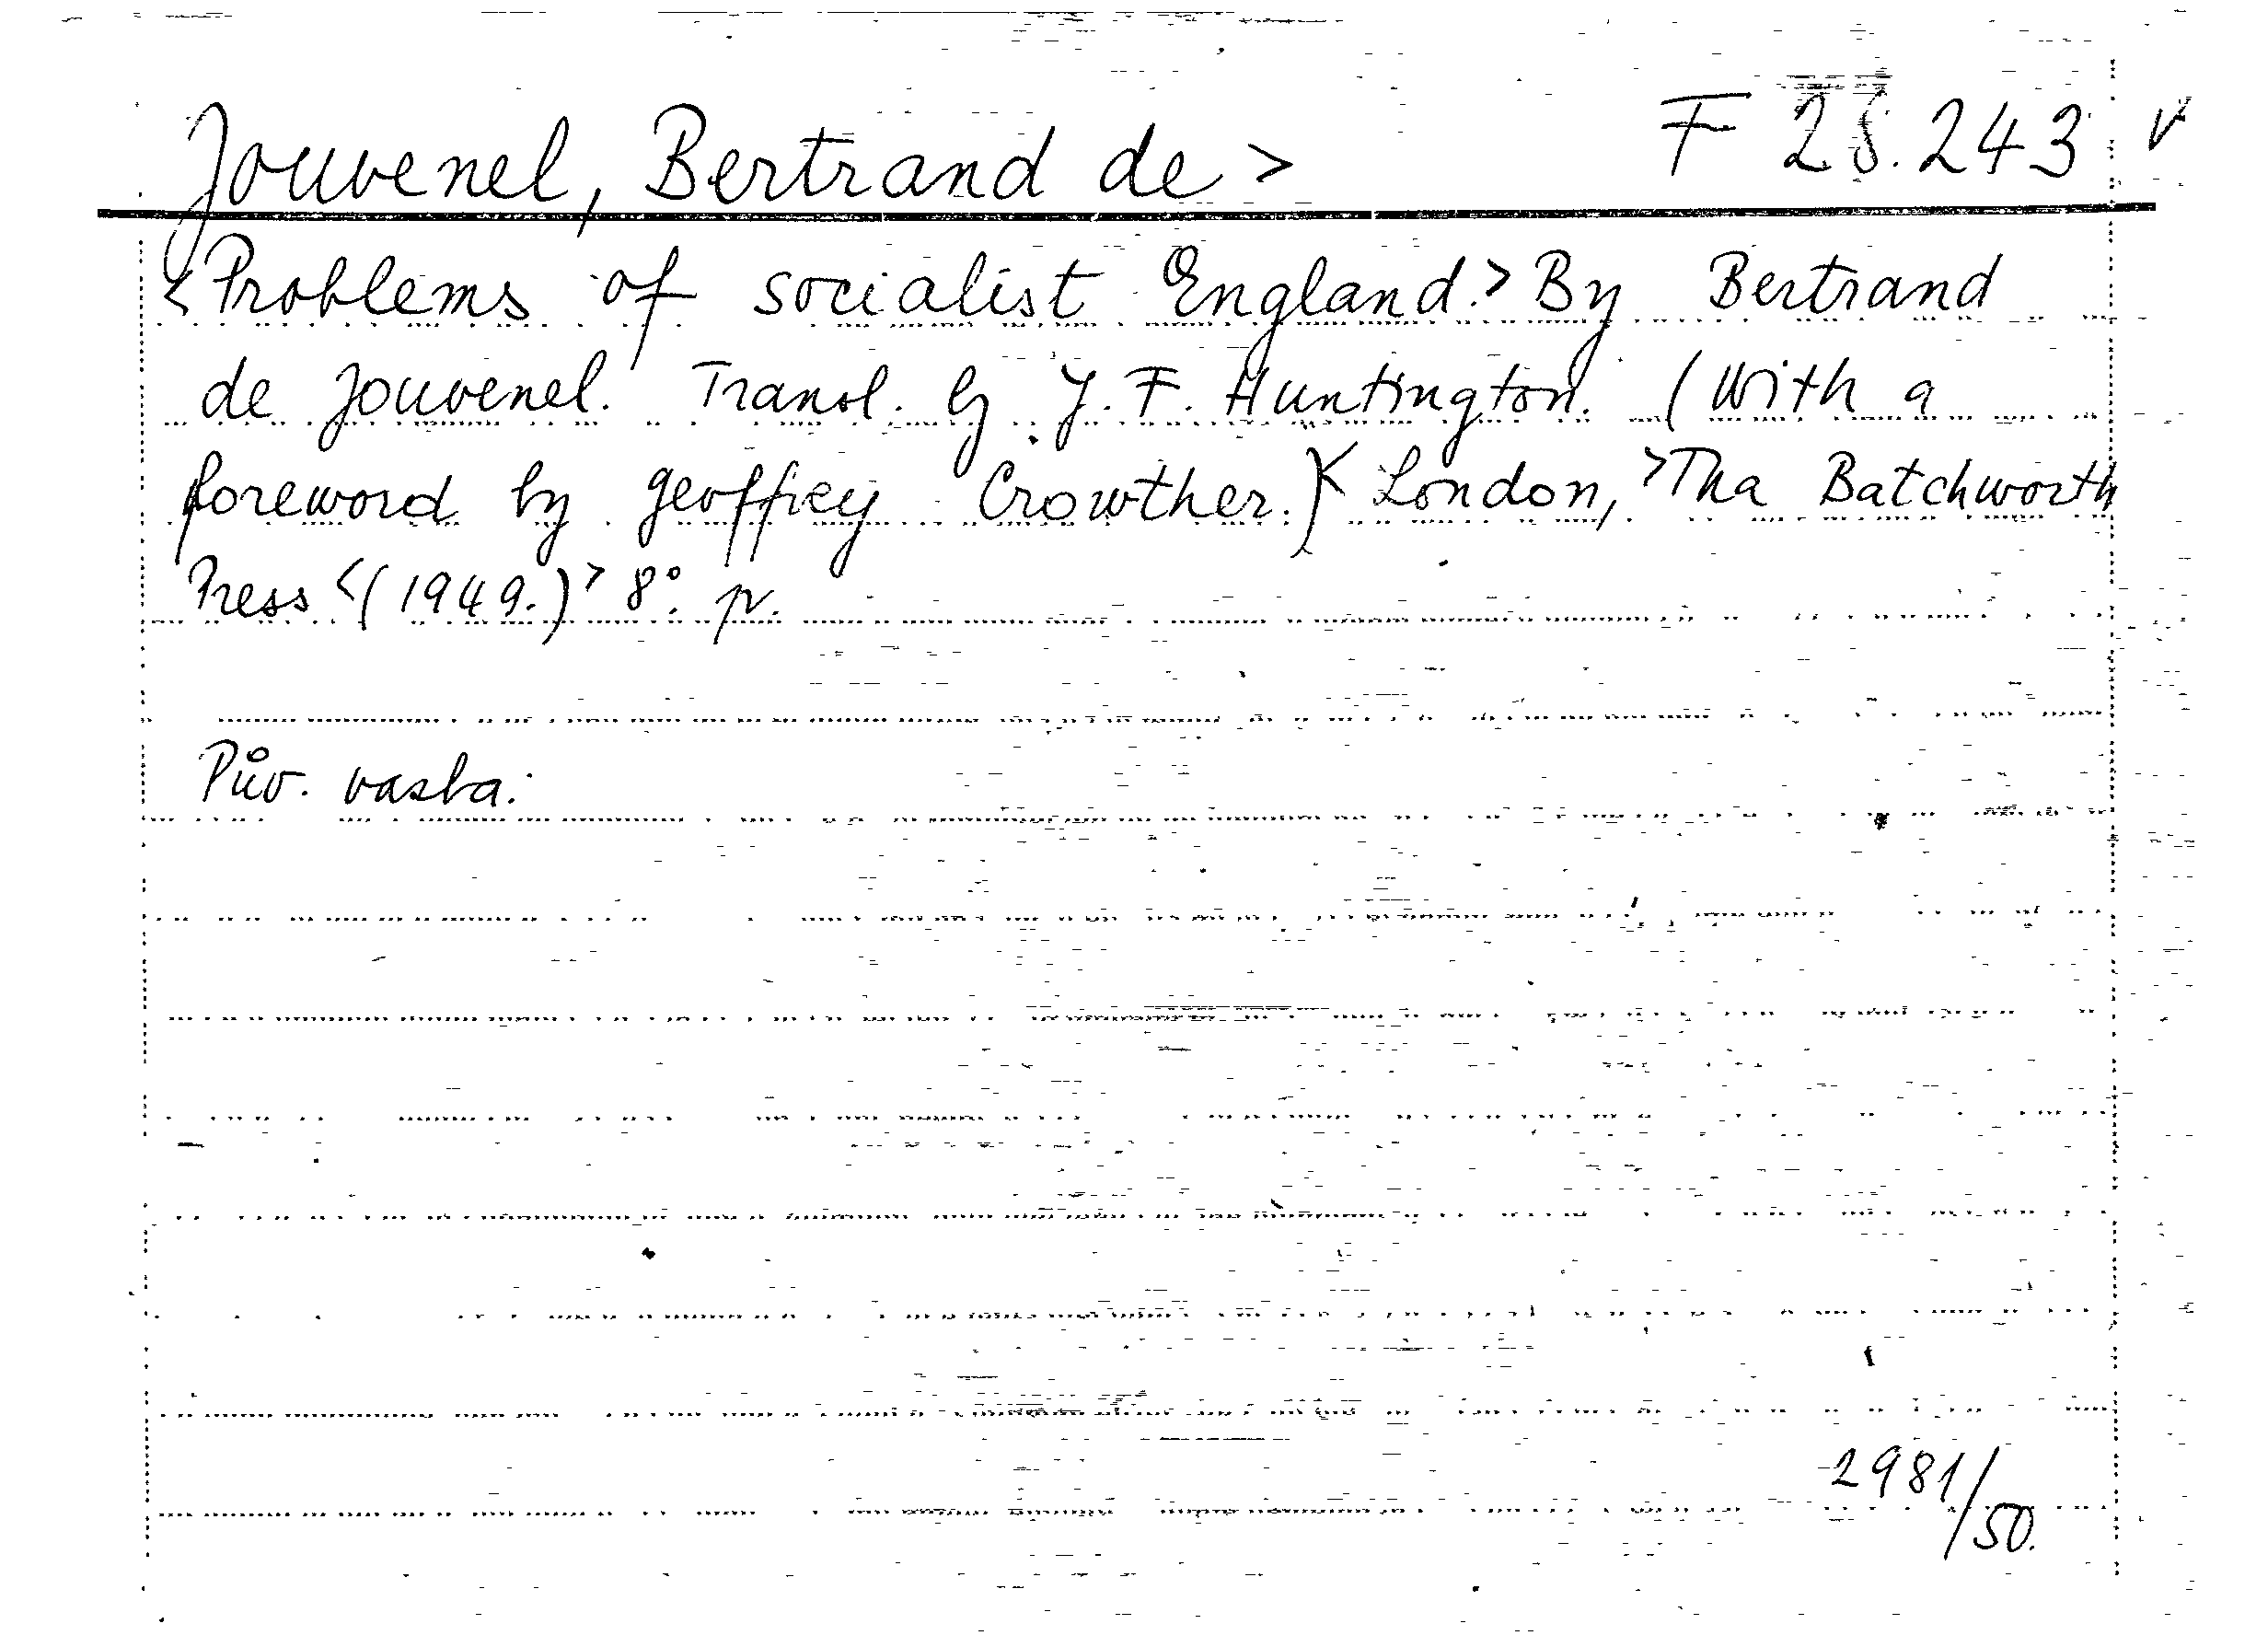 Jouvenel, Bertrand de > F 28.243 v
<Problems of socialist England.> By Bertrand
de Jouvenel. Transl. by J. F. Huntington. (With a
foreword by Geoffrey Crowther.)< London, >Tha Batchworth
Press <(1949.)> 8°. pv.
Pův. vazba.
2981/50.